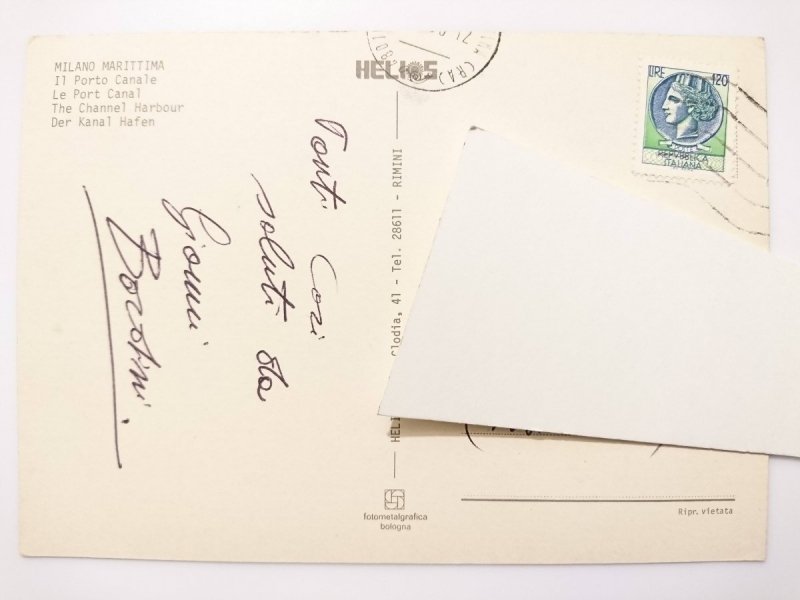 MILANO MARITTIMA
Il Porto Canale
Le Port Canal
The Channel Harbour
Der Kanal Hafen
HELIOS
(RA)
LIRE 120
POSTE
REPVBBLICA
ITALIANA
Tanti cari
saluti da
Gianni
Clodia, 41 - Tel. 28611 - RIMINI
fotometalgrafica
bologna
Ripr. vietata